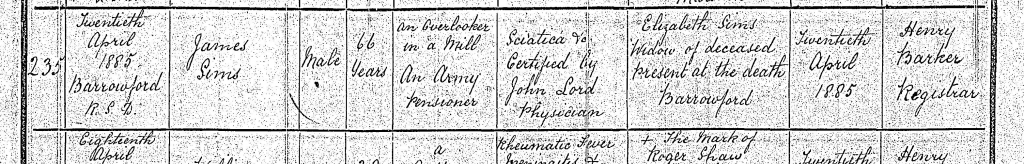 235
Twentieth
April
1885
Barrowford
R.S.D.
James
Sims
Male
66
Years
An Overlooker
in a Mill
An Army
Pensioner
Sciatica &c
Certified by
John Lord
Physician
Elizabeth Sims
Widow of deceased
Present at the death
Barrowford
Twentieth
April
1885
Henry
Barker
Registrar
Eighteenth
April
a
Rheumatic Fever
+ The Mark of
Roger Shaw
Twentieth
Henry